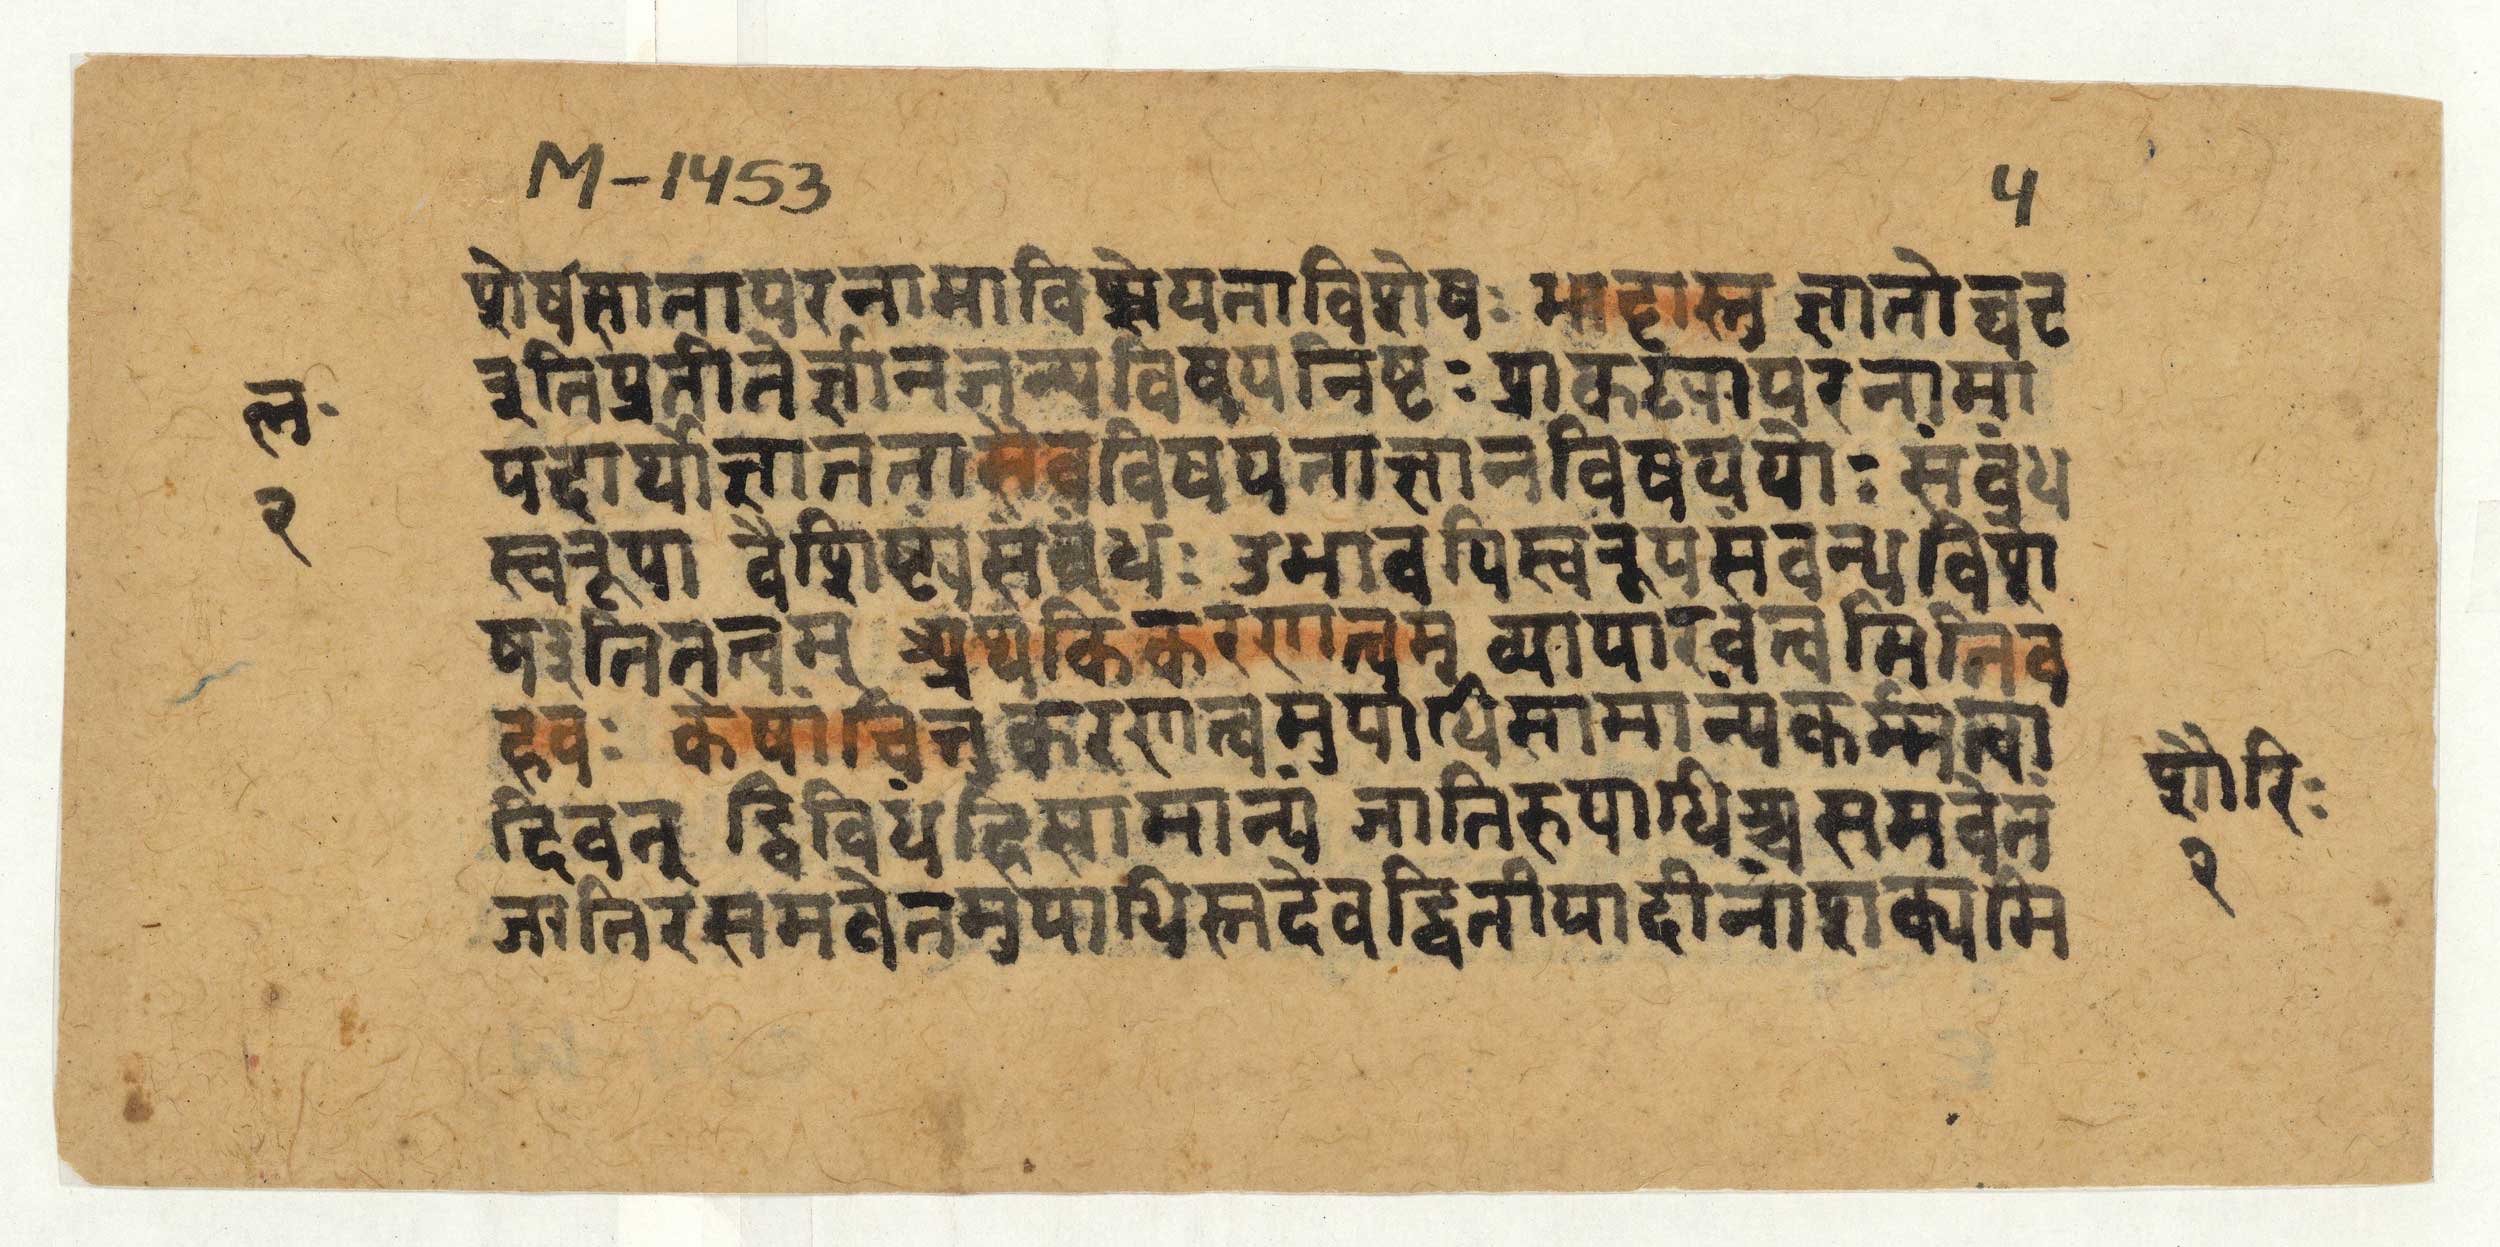 M-1453
५
शेर्षसानापरनामाविष्मेयताविशेषः भाट्टास्तु ज्ञातोघट
इतिप्रतीतेर्ज्ञानजन्यविषयनिष्टः प्राकट्यापरनामा
पदार्थोज्ञाततासैवविषयताज्ञानविषययोः संवंध
स्वरूपा वैशिष्ट्यंसंवंधः उभावपिस्वरूपसंवन्धविशे
षइतितत्त्वम् अथकिंकरणत्वम् व्यापारवत्त्वमितिव
हवः केषांचित्तुकरणत्वमुपाधिसामान्यंकर्मत्वा
दिवत् द्विविधंहिसामान्यं जातिरुपाधिश्च समवेतं
जातिरसमवेतमुपाधिस्तदेवद्वितीयादीनांशक्यमि
ल॰
२
शौरिः
२